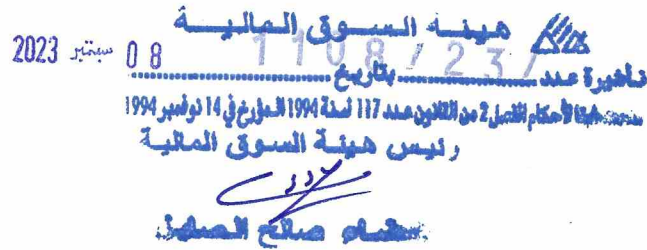 هيئة السوق المالية
تأشيرة عدد 1108/23 بتاريخ 08 سبتمبر 2023
طبقا لأحكام الفصل 2 من القانون عدد 117 لسنة 1994 المؤرخ في 14 نوفمبر 1994
رئيس هيئة السوق المالية
صالح الصايل